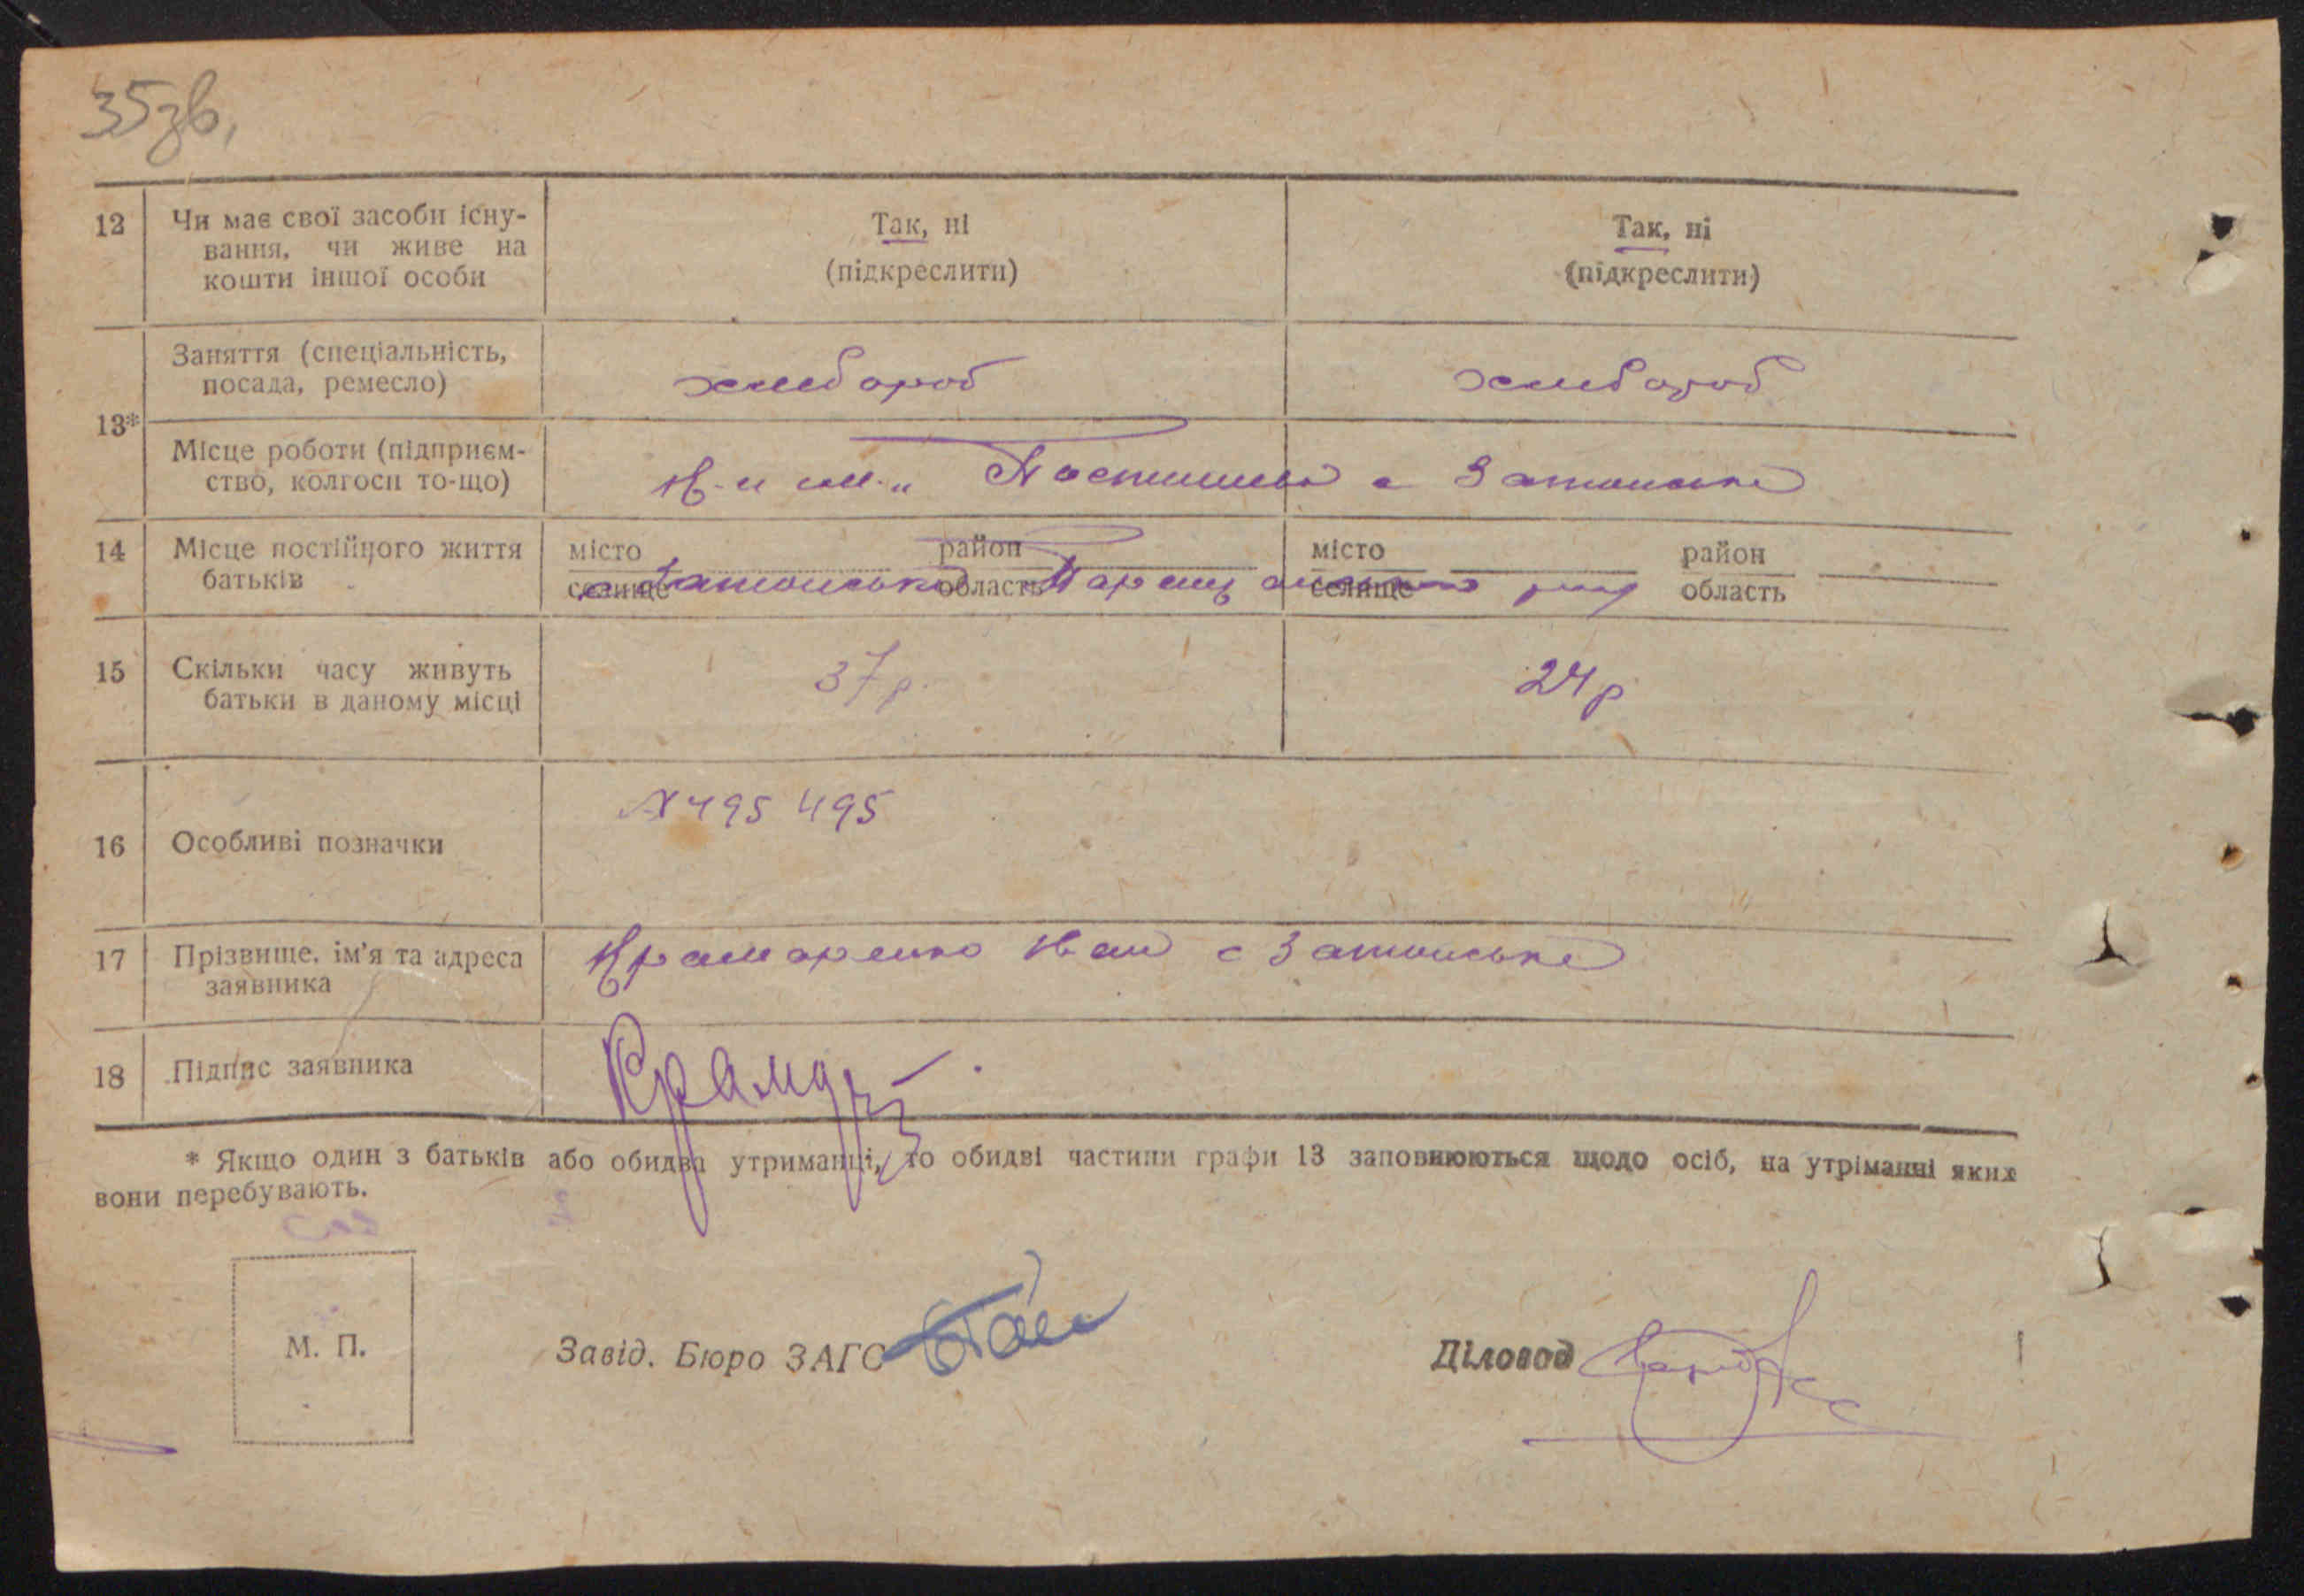 35зв.
12 Чи має свої засоби існу-
вання, чи живе на
кошти іншої особи
Так, ні
(підкреслити)
Так, ні
(підкреслити)
13*
Заняття (спеціальність,
посада, ремесло)
хлибороб
хлибороб
Місце роботи (підприєм-
ство, колгосп то-що)
Постишева с Затонське
14 Місце постійного життя
батьків
місто
селище
район
область
місто
селище
район
область
с Затонське
15 Скільки часу живуть
батьки в даному місці
37р.
24р
16 Особливі позначки
495 495
17 Прізвище, ім'я та адреса
заявника
Крамаренко Иван с Затонське
18 Підпис заявника
Крамар
* Якщо один з батьків або обидва утриманці, то обидві частини графи 13 заповнюються щодо осіб, на утріманні яких
вони перебувають.
М. П.
Завід. Бюро ЗАГС
Діловод